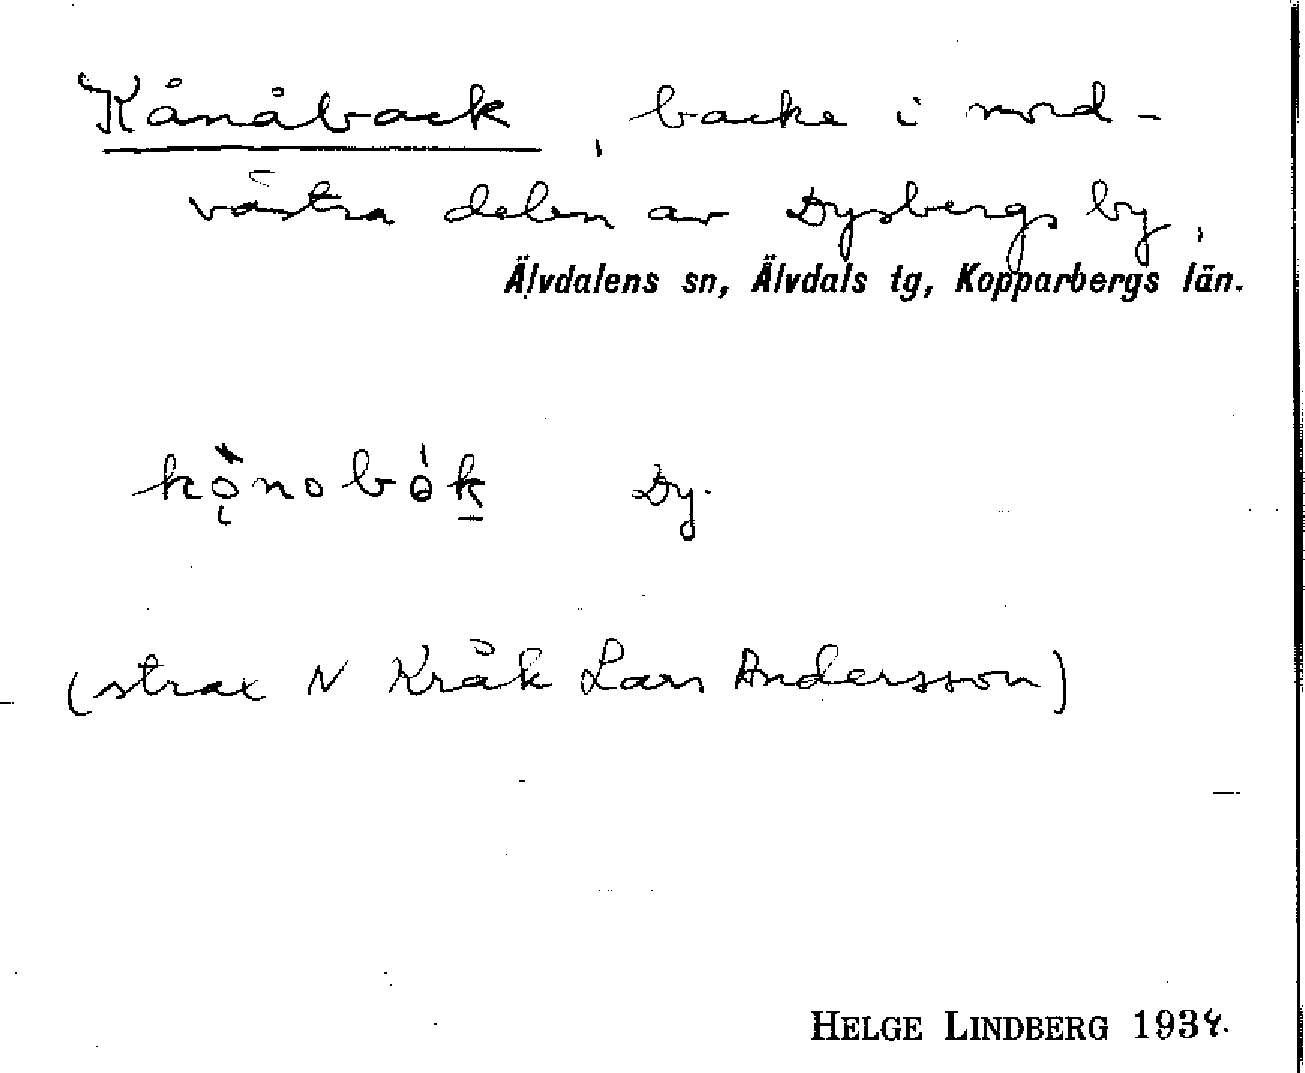 Kånåback, backe i nord-
västra delen av Dysbergs by,
Älvdalens sn, Älvdals tg, Kopparbergs län.
Dy.
(strax N Kråk Lars Andersson)
HELGE LINDBERG 1934.